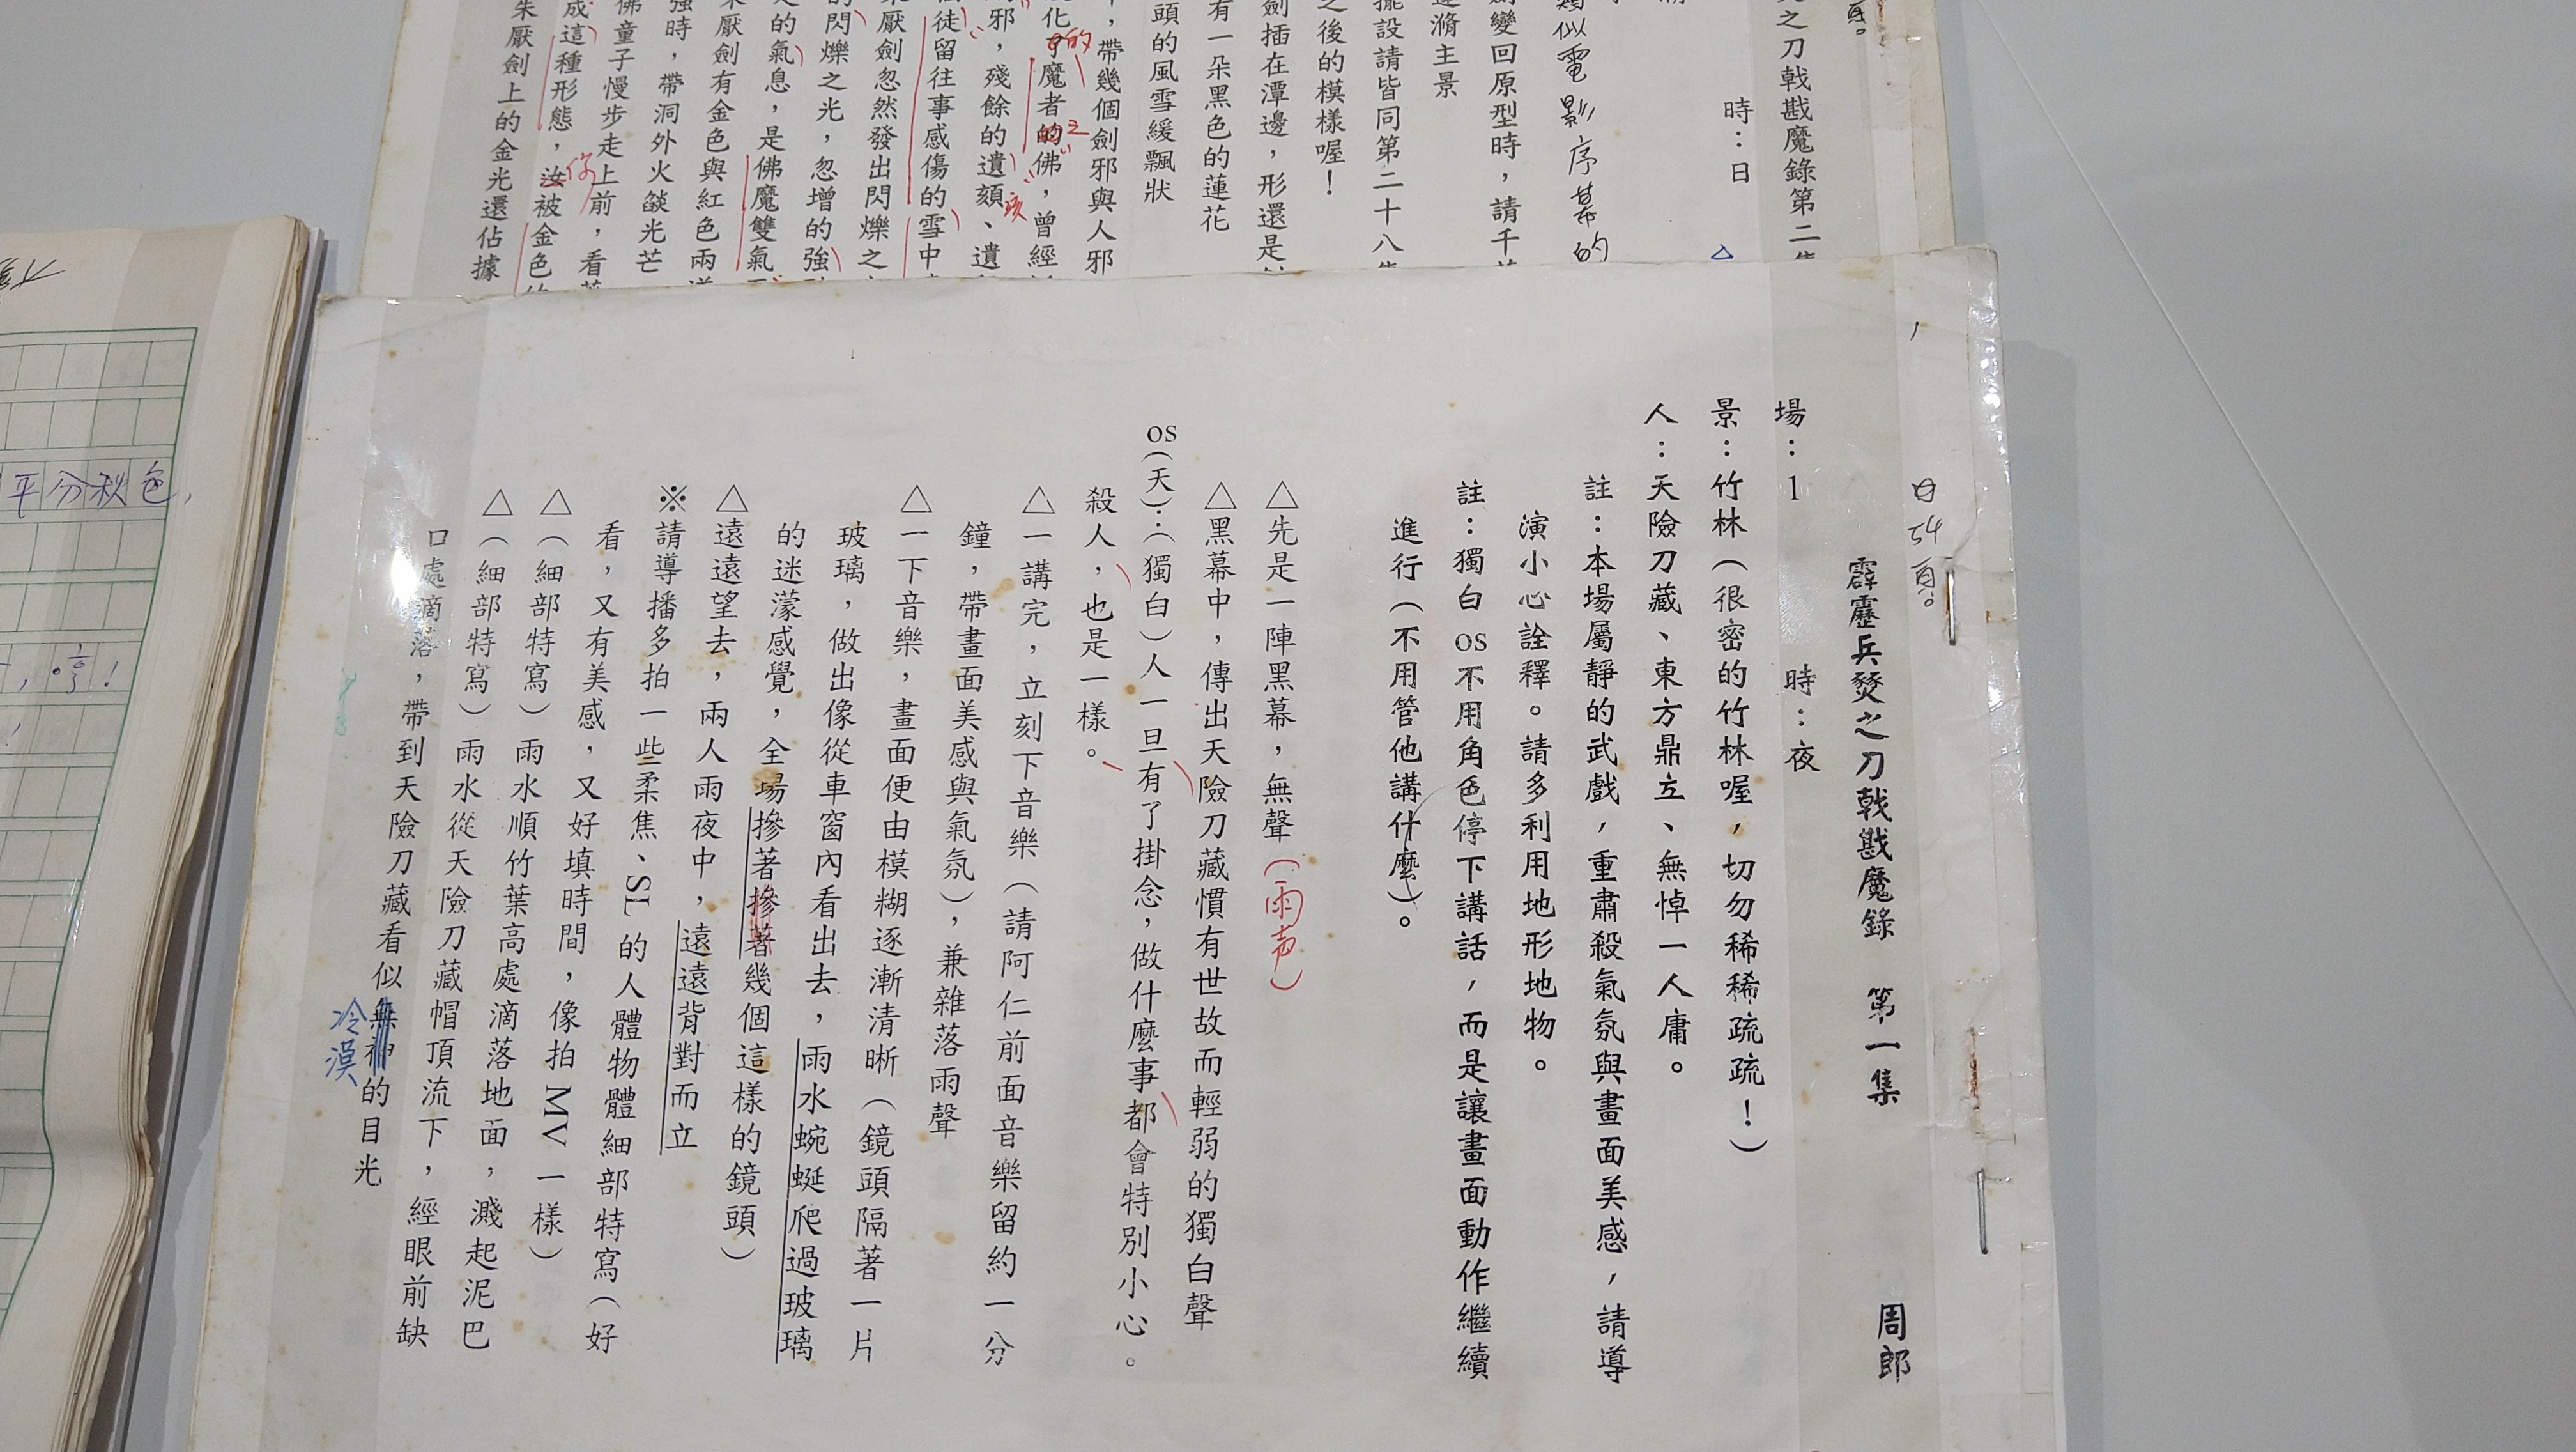 霹靂兵燹之刀戟戡魔錄　第一集　周郎
54頁。
場：1　時：夜
景：竹林（很密的竹林喔，切勿稀稀疏疏！）
人：天險刀藏、東方鼎立、無悼一人庸。
註：本場屬靜的武戲，重肅殺氣氛與畫面美感，請導
演小心詮釋。請多利用地形地物。
註：獨白os不用角色停下講話，而是讓畫面動作繼續
進行（不用管他講什麼）。
△先是一陣黑幕，無聲（雨声）
△黑幕中，傳出天險刀藏慣有世故而輕弱的獨白聲
os(天)：（獨白）人一旦有了掛念，做什麼事都會特別小心。
殺人，也是一樣。
△一講完，立刻下音樂（請阿仁前面音樂留約一分
鐘，帶畫面美感與氣氛），兼雜落雨聲
△一下音樂，畫面便由模糊逐漸清晰（鏡頭隔著一片
玻璃，做出像從車窗內看出去，雨水蜿蜒爬過玻璃
的迷濛感覺，全場摻著摻著幾個這樣的鏡頭）
△遠遠望去，兩人雨夜中，遠遠背對而立
※請導播多拍一些柔焦、SL的人體物體細部特寫（好
看，又有美感，又好填時間，像拍MV一樣）
△（細部特寫）雨水順竹葉高處滴落地面，濺起泥巴
△（細部特寫）雨水從天險刀藏帽頂流下，經眼前缺
口處滴落，帶到天險刀藏看似無神的目光
冷漠
頁。
之刀戟戡魔錄第二集
時：日
類似電影序幕的
變回原型時，請千
主景
擺設請皆同第二十八
之後的模樣喔！
劍插在潭邊，形還是
有一朵黑色的蓮花
頭的風雪緩飄狀
，帶幾個劍邪與人邪
化了的魔者的之佛，曾經
邪，殘餘的遺頦、遺
孩
徒留往事感傷的雪中
厭劍忽然發出閃爍之
的閃爍之光，忽增的強
的氣息，是佛魔雙氣
厭劍有金色與紅色兩
強時，帶洞外火燄光芒
佛童子慢步走上前，看
成這種形態，汝被金色
你
朱厭劍上的金光還佔據
平分秋色，
，哼！